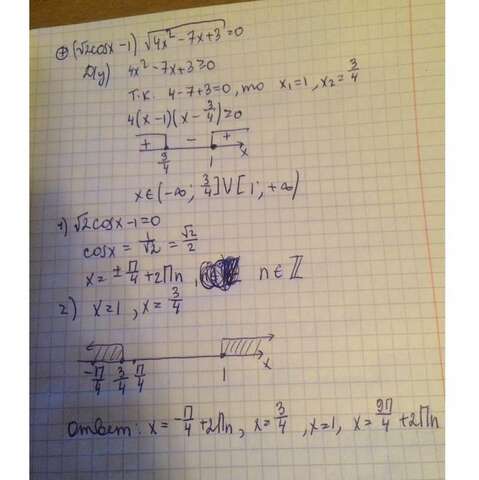 ⊕ (√2cosx-1) √4x²-7x+3 = 0
D(y) 4x²-7x+3≥0
т.к. 4-7+3=0, то x₁=1, x₂=3/4
4(x-1)(x-3/4)≥0
+ - +
3/4 1 x
x∈(-∞; 3/4]∪[1; +∞)
1) √2cosx-1=0
cosx = 1/√2 = √2/2
x = ±π/4+2πn, n∈Z
2) x=1, x=3/4
-π/4 3/4 π/4 1 x
ответ: x = -π/4+2πn, x=3/4, x=1, x=9π/4+2πn